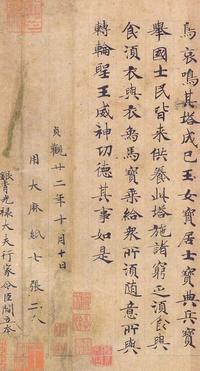 鳥哀鳴其塔成已王女寶居士寶典兵寶
舉國士民皆來供養此塔施諸窮乏須食與
食須衣與衣象馬寶乘給衆所須隨意所與
轉輪聖王威神功德其事如是
貞觀廿二年十月十日
用大麻紙七張二分
銀青光祿大夫行家令臣閻立本